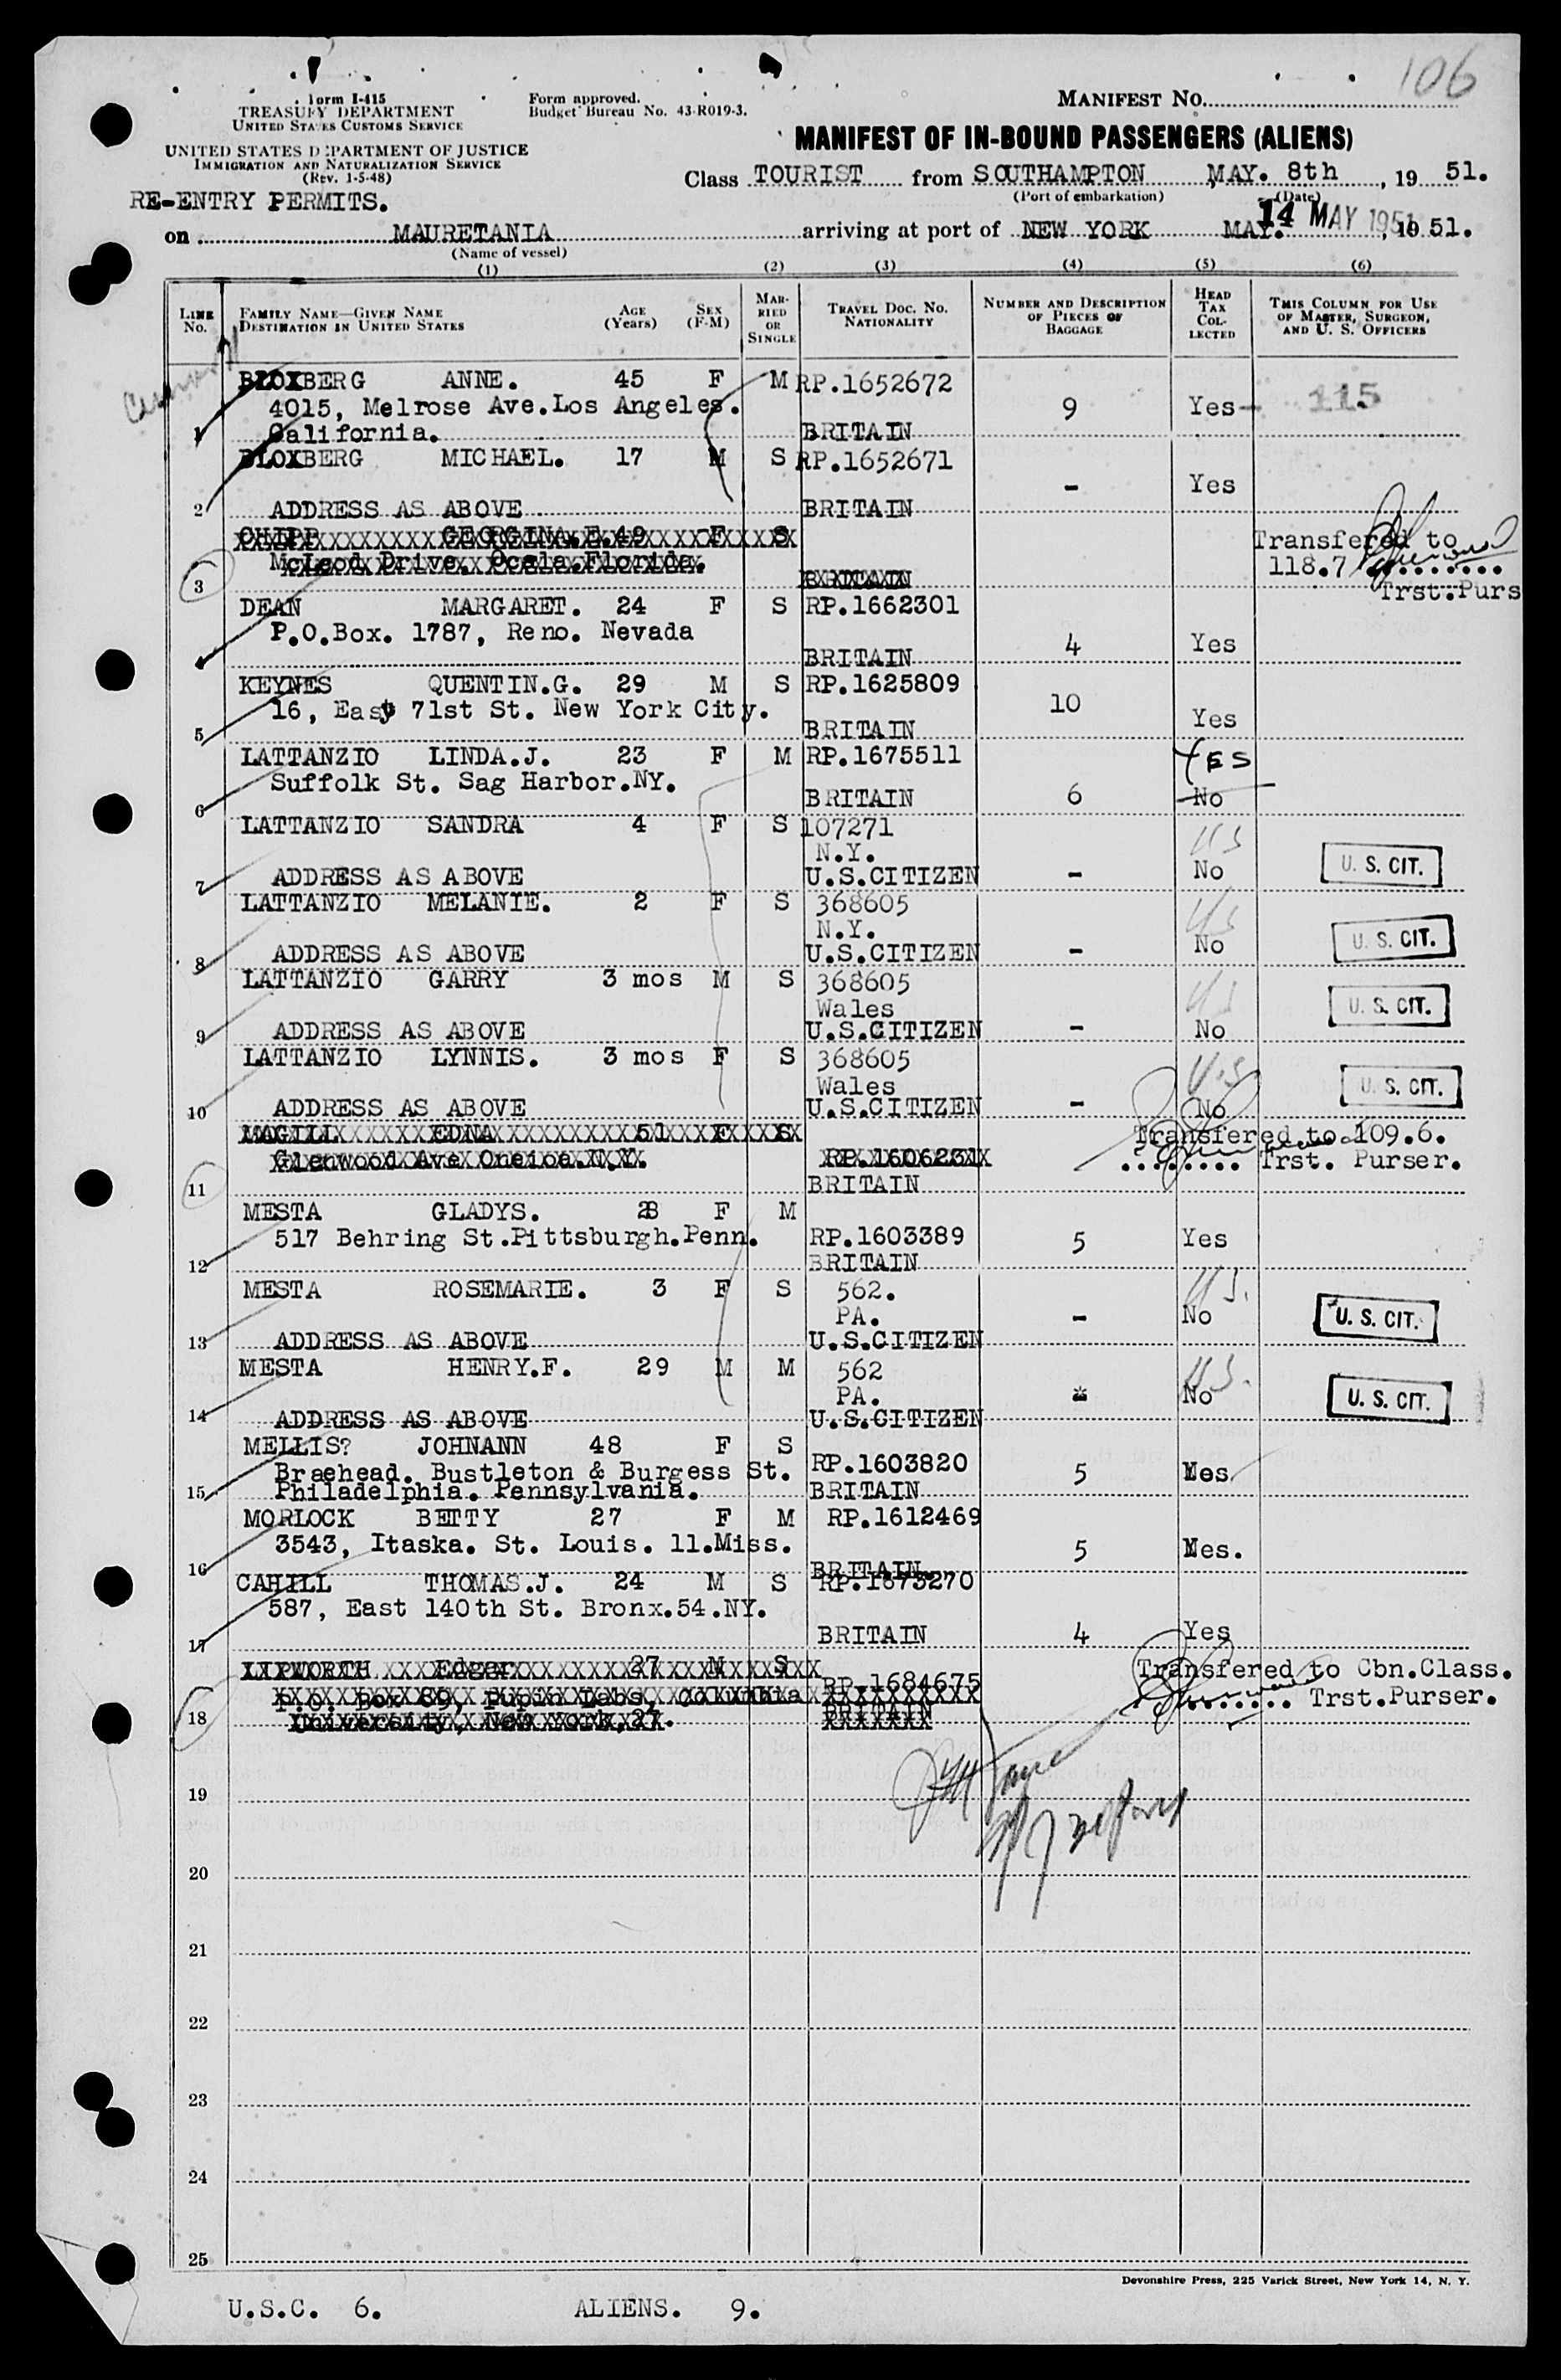 106
Form I-415
TREASURY DEPARTMENT
UNITED STATES CUSTOMS SERVICE
UNITED STATES DEPARTMENT OF JUSTICE
IMMIGRATION AND NATURALIZATION SERVICE
(Rev. 1-5-48)
Form approved.
Budget Bureau No. 43-R019-3.
MANIFEST NO.
MANIFEST OF IN-BOUND PASSENGERS (ALIENS)
Class TOURIST from SOUTHAMPTON MAY. 8th, 19 51.
(Port of embarkation) (Date)
RE-ENTRY PERMITS.
on MAURETANIA arriving at port of NEW YORK MAY. 14 MAY 1951, 19 51.
(Name of vessel)
(1) (2) (3) (4) (5) (6)
LINE No. FAMILY NAME—GIVEN NAME DESTINATION IN UNITED STATES AGE (Years) SEX (F-M) MARRIED OR SINGLE TRAVEL DOC. NO. NATIONALITY NUMBER AND DESCRIPTION OF PIECES OF BAGGAGE HEAD TAX COLLECTED THIS COLUMN FOR USE OF MASTER, SURGEON, AND U. S. OFFICERS
BLOXBERG ANNE. 45 F M RP.1652672
4015, Melrose Ave.Los Angeles. 9 Yes- 115
1 California. BRITAIN
BLOXBERG MICHAEL. 17 M S RP.1652671
- Yes
2 ADDRESS AS ABOVE BRITAIN
CHIPP GEORGINA.E. 49 F S Transfered to
McLeod Drive. Ocala.Florida. 118.7
3 BRITAIN Trst.Purs
DEAN MARGARET. 24 F S RP.1662301
P.O.Box. 1787, Reno. Nevada 4 Yes
4 BRITAIN
KEYNES QUENTIN.G. 29 M S RP.1625809
16, East 71st St. New York City. 10 Yes
5 BRITAIN
LATTANZIO LINDA.J. 23 F M RP.1675511 YES
Suffolk St. Sag Harbor.NY.
6 BRITAIN 6 No
LATTANZIO SANDRA 4 F S 107271 US
N.Y.
7 ADDRESS AS ABOVE U.S.CITIZEN - No U. S. CIT.
LATTANZIO MELANIE. 2 F S 368605 US
N.Y.
8 ADDRESS AS ABOVE U.S.CITIZEN - No U. S. CIT.
LATTANZIO GARRY 3 mos M S 368605 US
Wales
9 ADDRESS AS ABOVE U.S.CITIZEN - No U. S. CIT.
LATTANZIO LYNNIS. 3 mos F S 368605 U.S
Wales
10 ADDRESS AS ABOVE U.S.CITIZEN - No U. S. CIT.
MAGILL EDNA 51 F S Transfered to 109.6.
Glenwood Ave Oneida.N.Y. RP.1606231 Trst. Purser.
11 BRITAIN
MESTA GLADYS. 28 F M
517 Behring St.Pittsburgh.Penn. RP.1603389 5 Yes
12 BRITAIN
MESTA ROSEMARIE. 3 F S 562. US.
PA. - No U. S. CIT.
13 ADDRESS AS ABOVE U.S.CITIZEN
MESTA HENRY.F. 29 M M 562 US.
PA. No U. S. CIT.
14 ADDRESS AS ABOVE U.S.CITIZEN
MELLIS? JOHNANN 48 F S
Braehead. Bustleton & Burgess St. RP.1603820 5 Yes
15 Philadelphia. Pennsylvania. BRITAIN
MORLOCK BETTY 27 F M RP.1612469
3543, Itaska. St. Louis. 11.Miss. 5 Yes.
16 BRITAIN.
CAHILL THOMAS.J. 24 M S RP.1673270
587, East 140th St. Bronx.54.NY.
17 BRITAIN 4 Yes
LIPWORTH Edgar 27 M S RP.1684675 Transfered to Cbn.Class.
P.O. Box 89, Pupin Labs, Columbia BRITAIN Trst.Purser.
18 University, New York,27.
19
20
21
22
23
24
25
Devonshire Press, 225 Varick Street, New York 14, N. Y.
U.S.C. 6. ALIENS. 9.